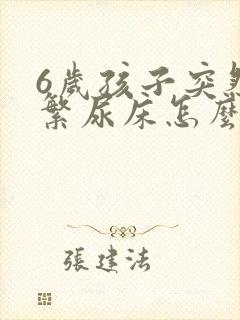 6歲孩子突然
繁尿床怎麼
張建法